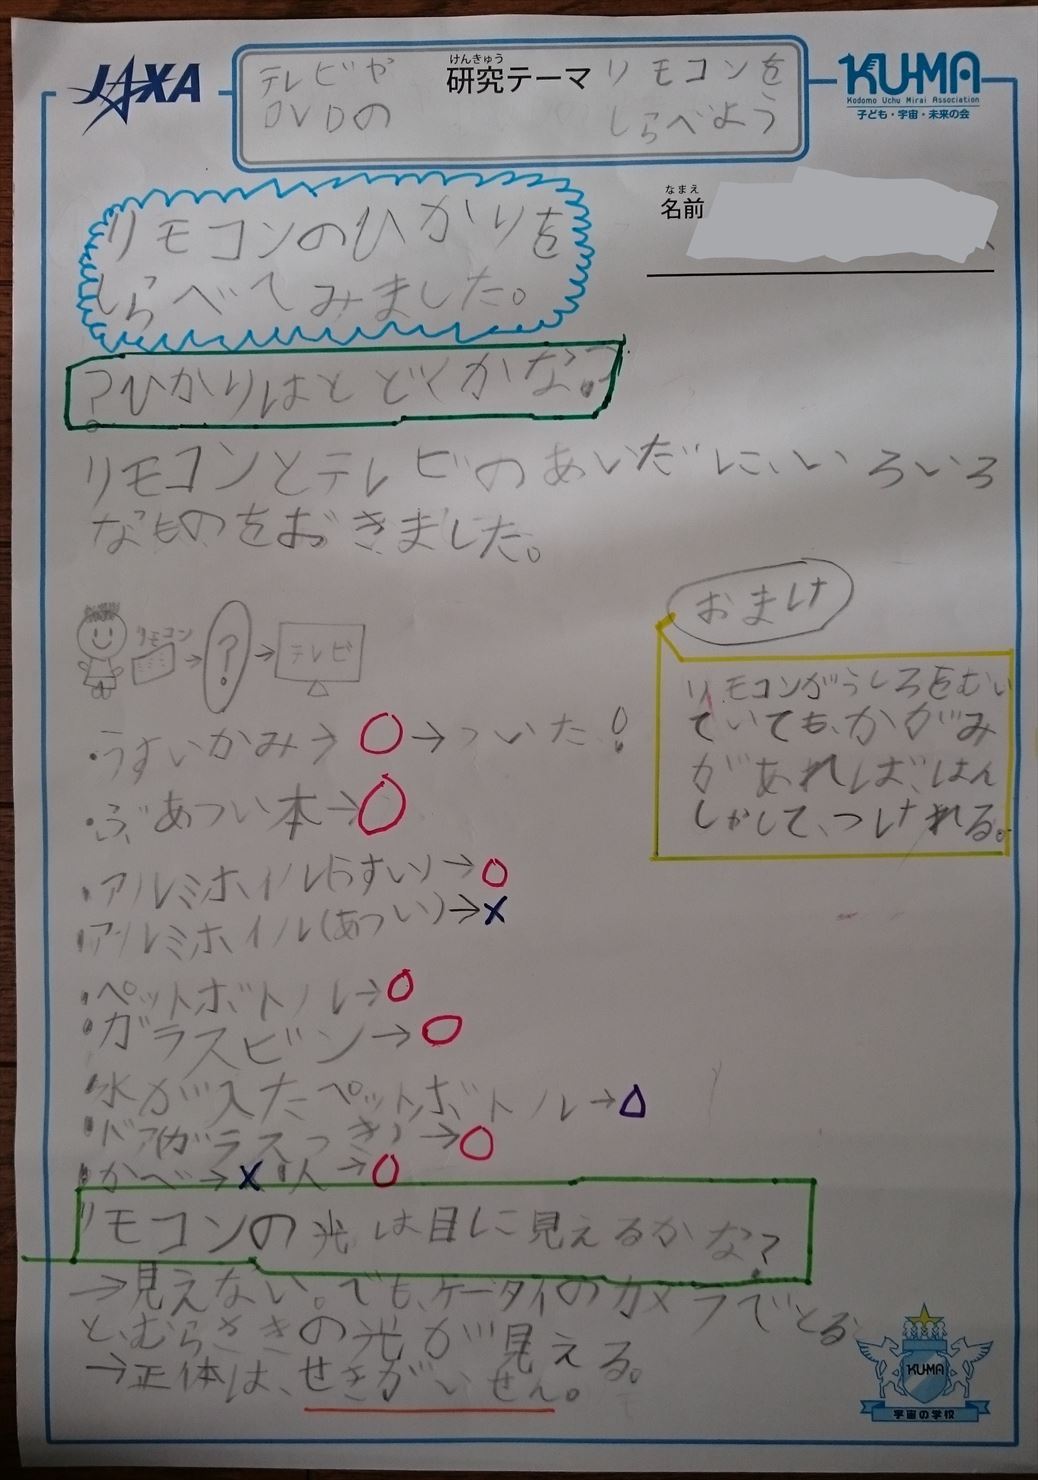 JAXA
けんきゅう
研究テーマ
テレビや
DVDの
リモコンを
しらべよう
KU-MA
Kodomo Uchu Mirai Association
子ども・宇宙・未来の会
なまえ
名前
リモコンのひかりを
しらべてみました。
?ひかりはとどくかな?
リモコンとテレビのあいだに、いろいろ
なものをおきました。
リモコン
→?→テレビ
・うすいかみ→○→ついた!
・ぶあつい本→○
・アルミホイル(うすい)→○
・アルミホイル(あつい)→×
・ペットボトル→○
・ガラスビン→○
・水が入たペットボトル→△
・ドア(ガラスつき)→○
・かべ→× ・人→○
おまけ
リモコンがうしろをむい
ていても、かがみ
があれば、はん
しゃして、つけれる。
リモコンの光は目に見えるかな?
→見えない。でも、ケータイのカメラでとる
と、むらさきの光が見える。
→正体は、せきがいせん。
KU-MA
宇宙の学校